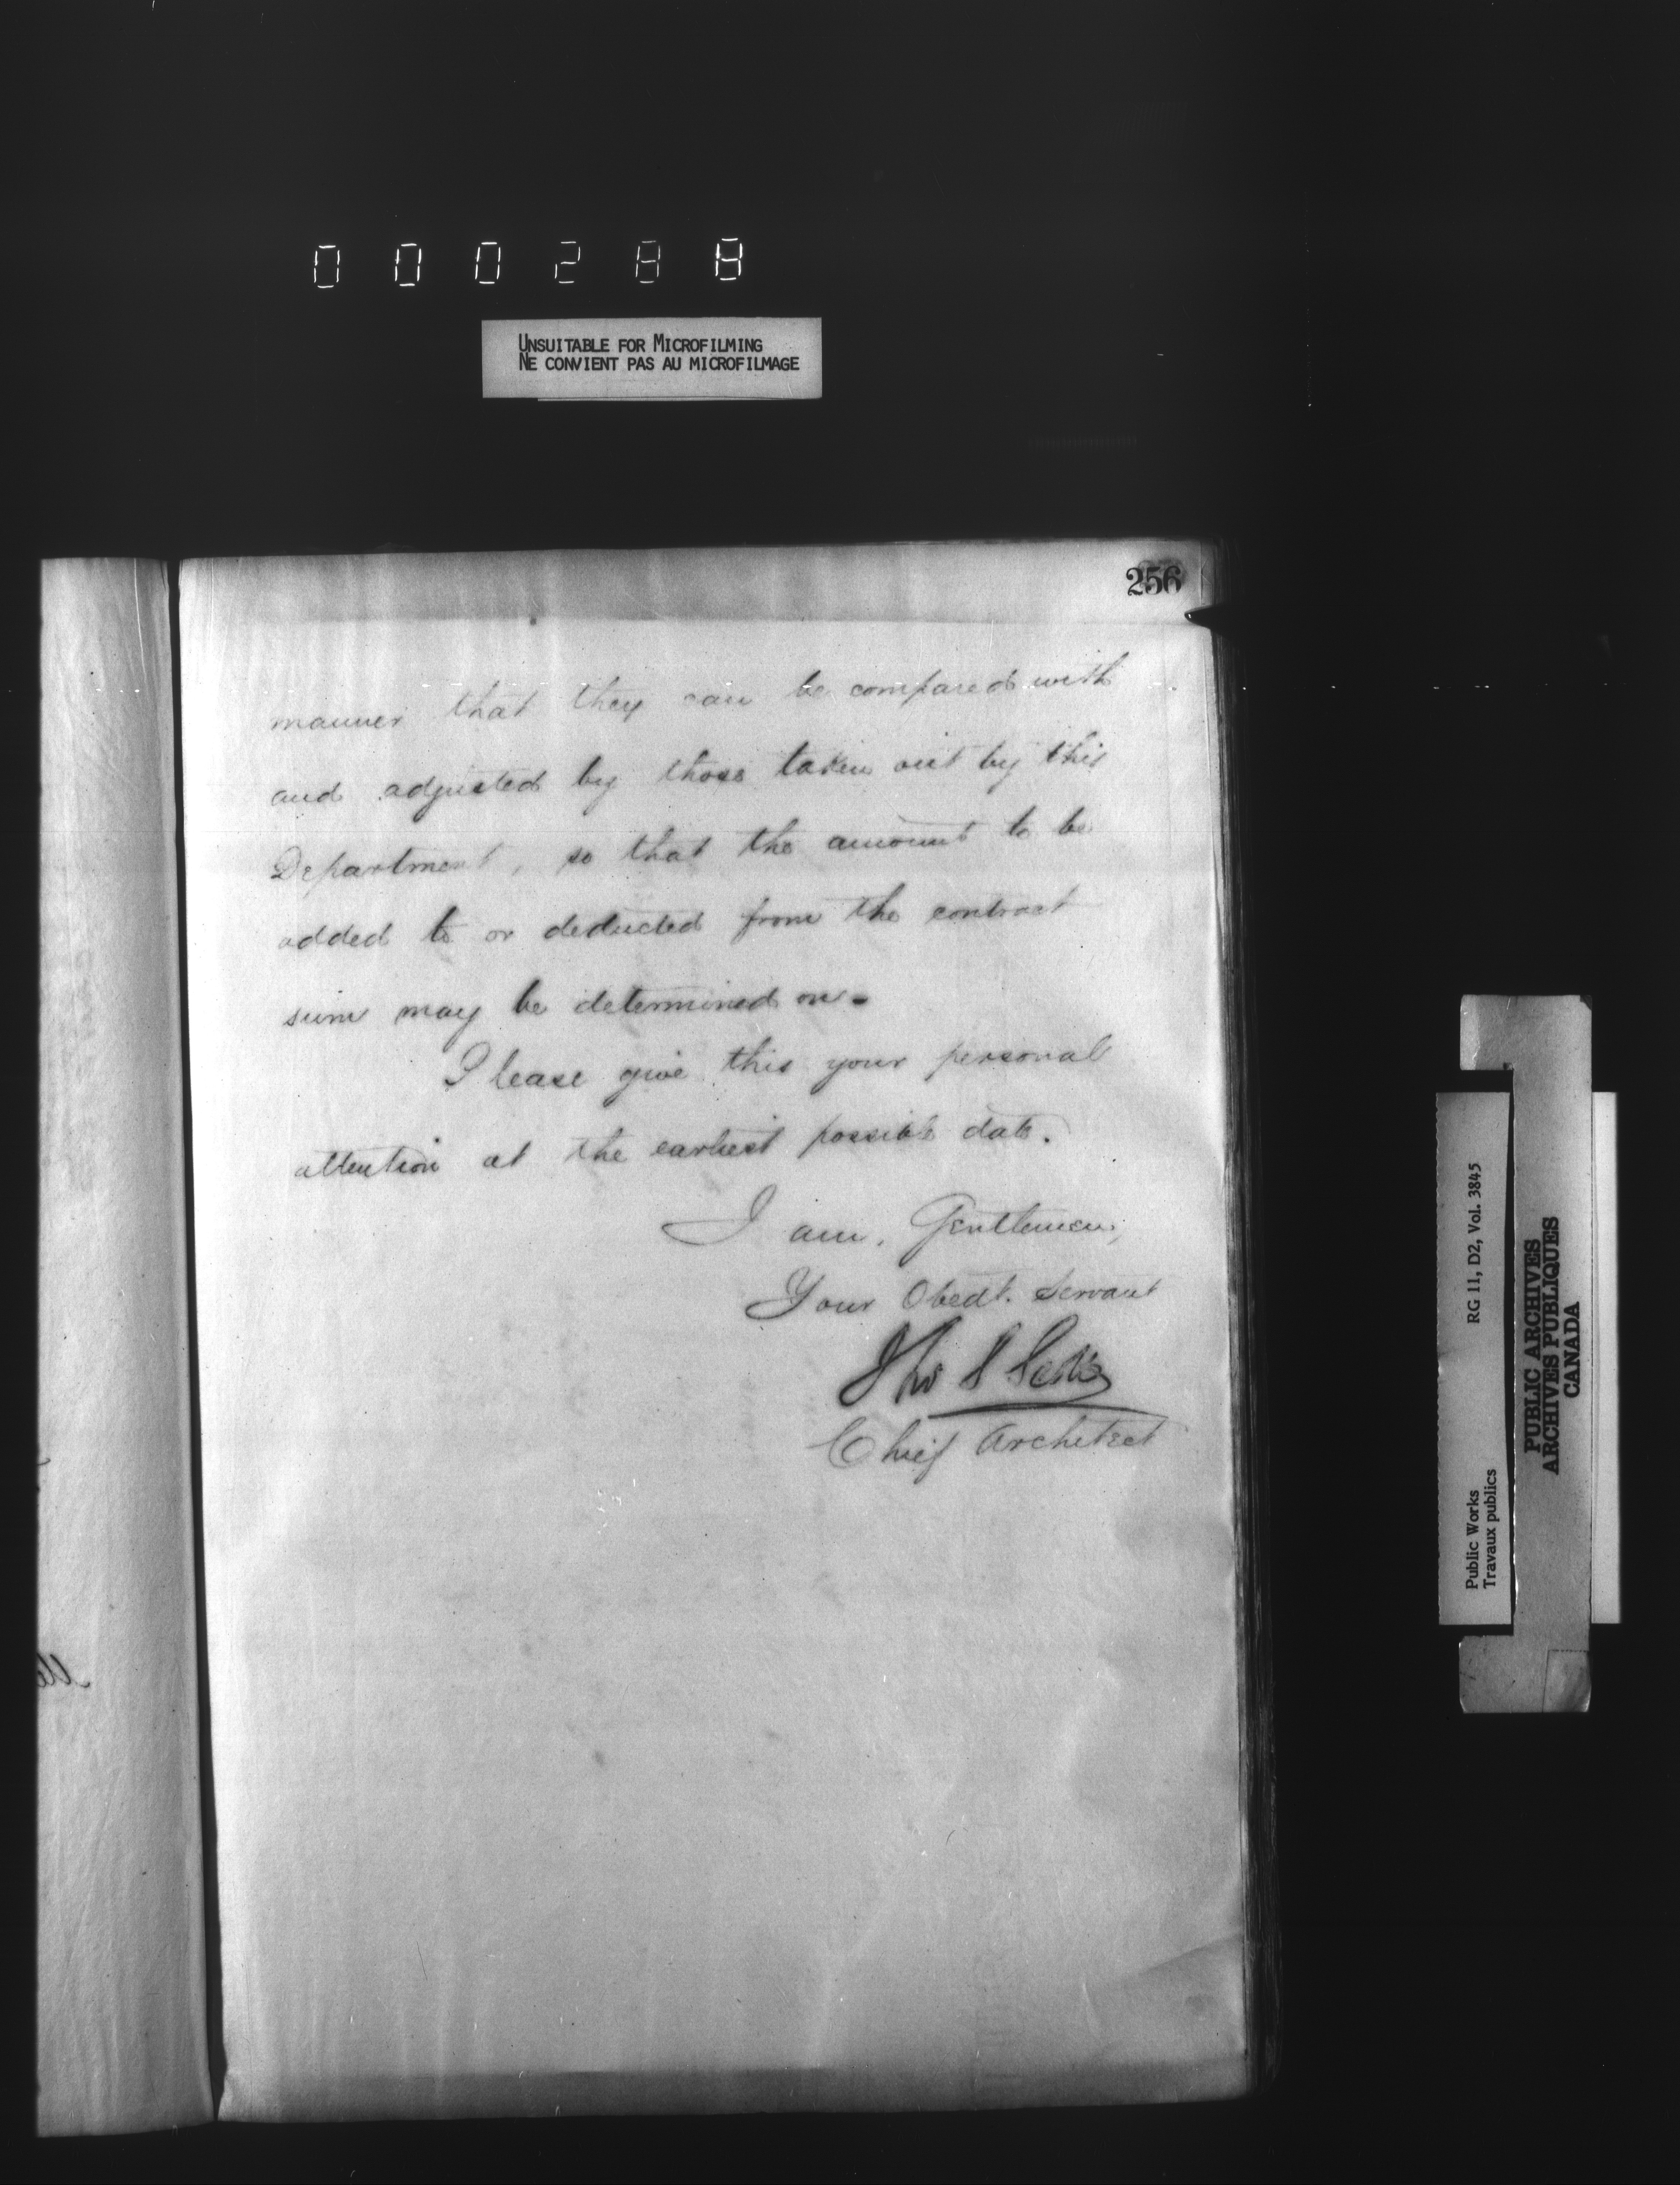 000288
UNSUITABLE FOR MICROFILMING
NE CONVIENT PAS AU MICROFILMAGE
256
manner that they can be compared with
and adjusted by those taken out by this
Department, so that the amount to be
added to or deducted from the contract
sum may be determined on.
Please give this your personal
attention at the earliest possible date.
I am, Gentlemen,
Your Obedt. Servant
Thos S Scott
Chief Architect
Public Works
Travaux publics
RG 11, D2, Vol. 3845
PUBLIC ARCHIVES
ARCHIVES PUBLIQUES
CANADA